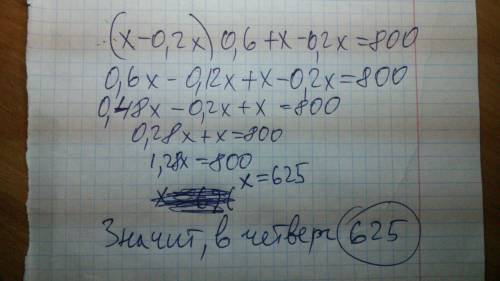 (x-0,2x) 0,6+x-0,2x=800
0,6x-0,12x+x-0,2x=800
0,48x-0,2x+x=800
0,28x+x=800
1,28x=800
x=625
Значит, в четверг 625